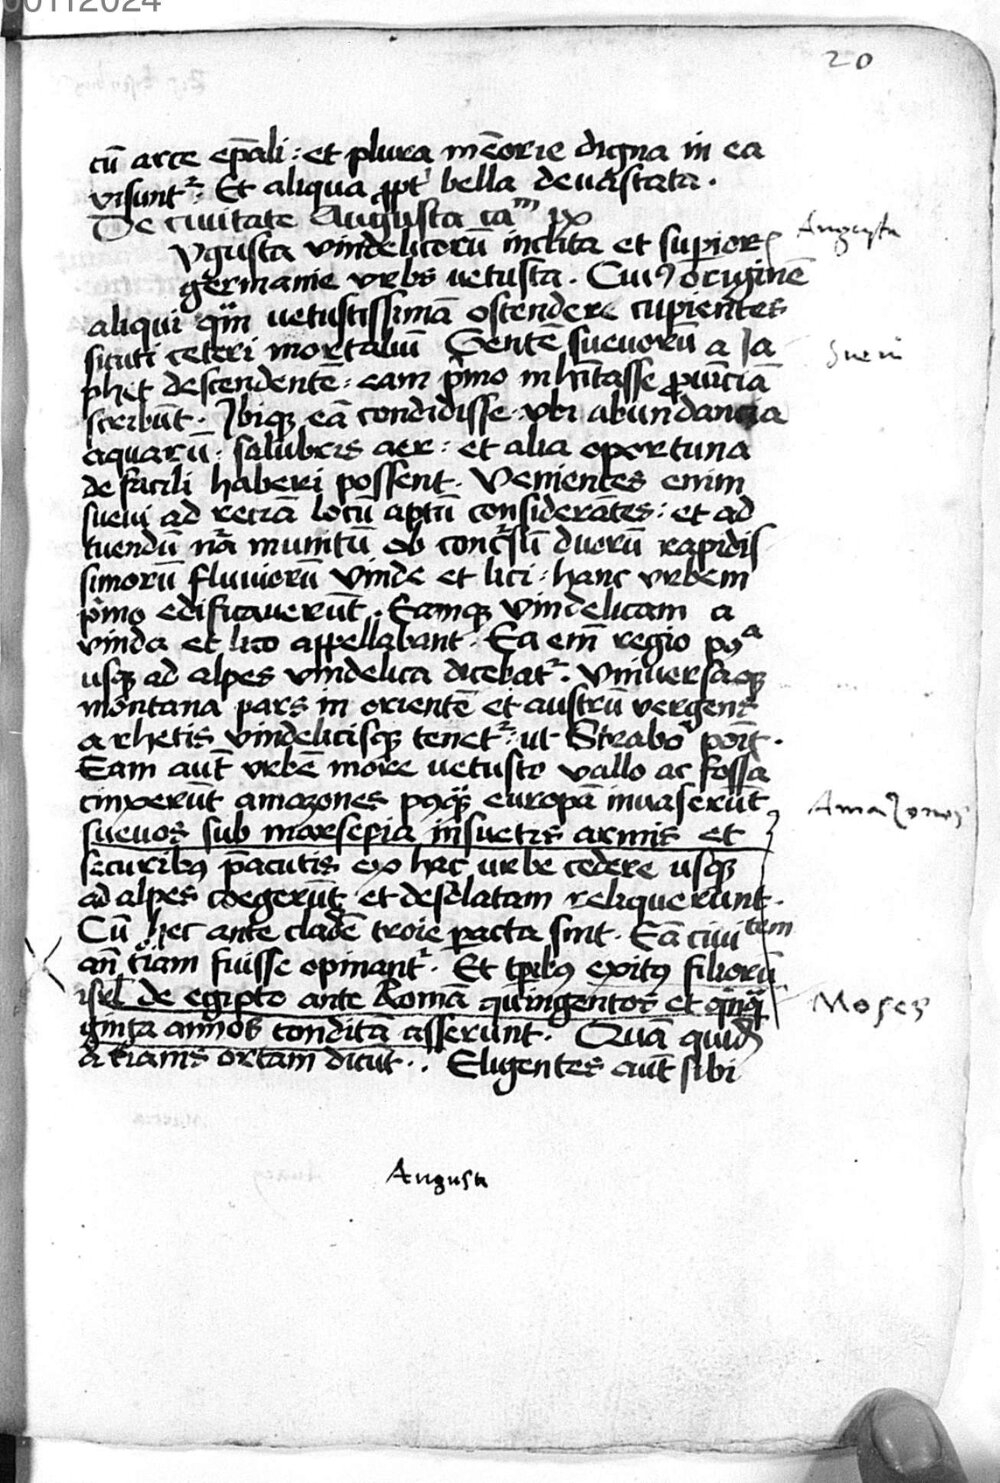 00112024
20
cū arce ep̄ali : et plura mēorie digna in ea
visuntʳ : Et aliqua ꝓpt' bella deuastata .
De ciuitate Augusta caᵐ ix
Augusta
Vgusta vindelicorū inclita et superior'
germanie vrbs uetusta . Cuiꝯ originē
aliqui qm̄ uetustissimā ostendere cupientes
sicuti ceteri mortaliū Gentē sueuorū a Ja
Sueui
phet descendentē : eam p'mo inhītasse ꝓuīciā
scribūt . Ibiqꝫ eā condidisse vbi abundancia
aquarū : salubris aer : et alia oportuna
de facili haberi possent . Venientes enim
sueui ad reciā locū aptū considerātes : et ad
tuendū nā munitū ob concʳsū duorū rapidis
simorū fluuiorū vinde et lici : hanc vrbem
p'mo edificauerūt . Eamqꝫ vindelicam a
vinda et lico appellabant . Ea em̄ regio poᵃ
usqꝫ ad alpes vindelica dicebatʳ . Vniuersaqꝫ
montana pars in orientē et austrū vergens
a rhetis vindelicisqꝫ tenetʳ : ut Strabo pōit .
Eam aut̄ vrbē more uetusto vallo ac fossa
cinxerūt amazones pꝰqꝫ europā inuaserūt
Amazones
sueuos sub marsepia insuetis armis et
securibꝯ p̄acutis ex hac urbe cedere usqꝫ
ad alpes coegerūt et desolatam reliquerunt .
Cū hec ante cladē troie ꝑacta sint . Eā ciuiᵗᵉᵐ
an̄ troiam fuisse opinantʳ . Et tꝑibꝯ exitꝯ filiorū
isrl̄ de egipto ante Romā quingentos et qnqᵃ
Moses
ginta annos conditā asserunt . Quā quid'
a ... ortam dicūt . . Eligentes aut̄ sibi
Augusta